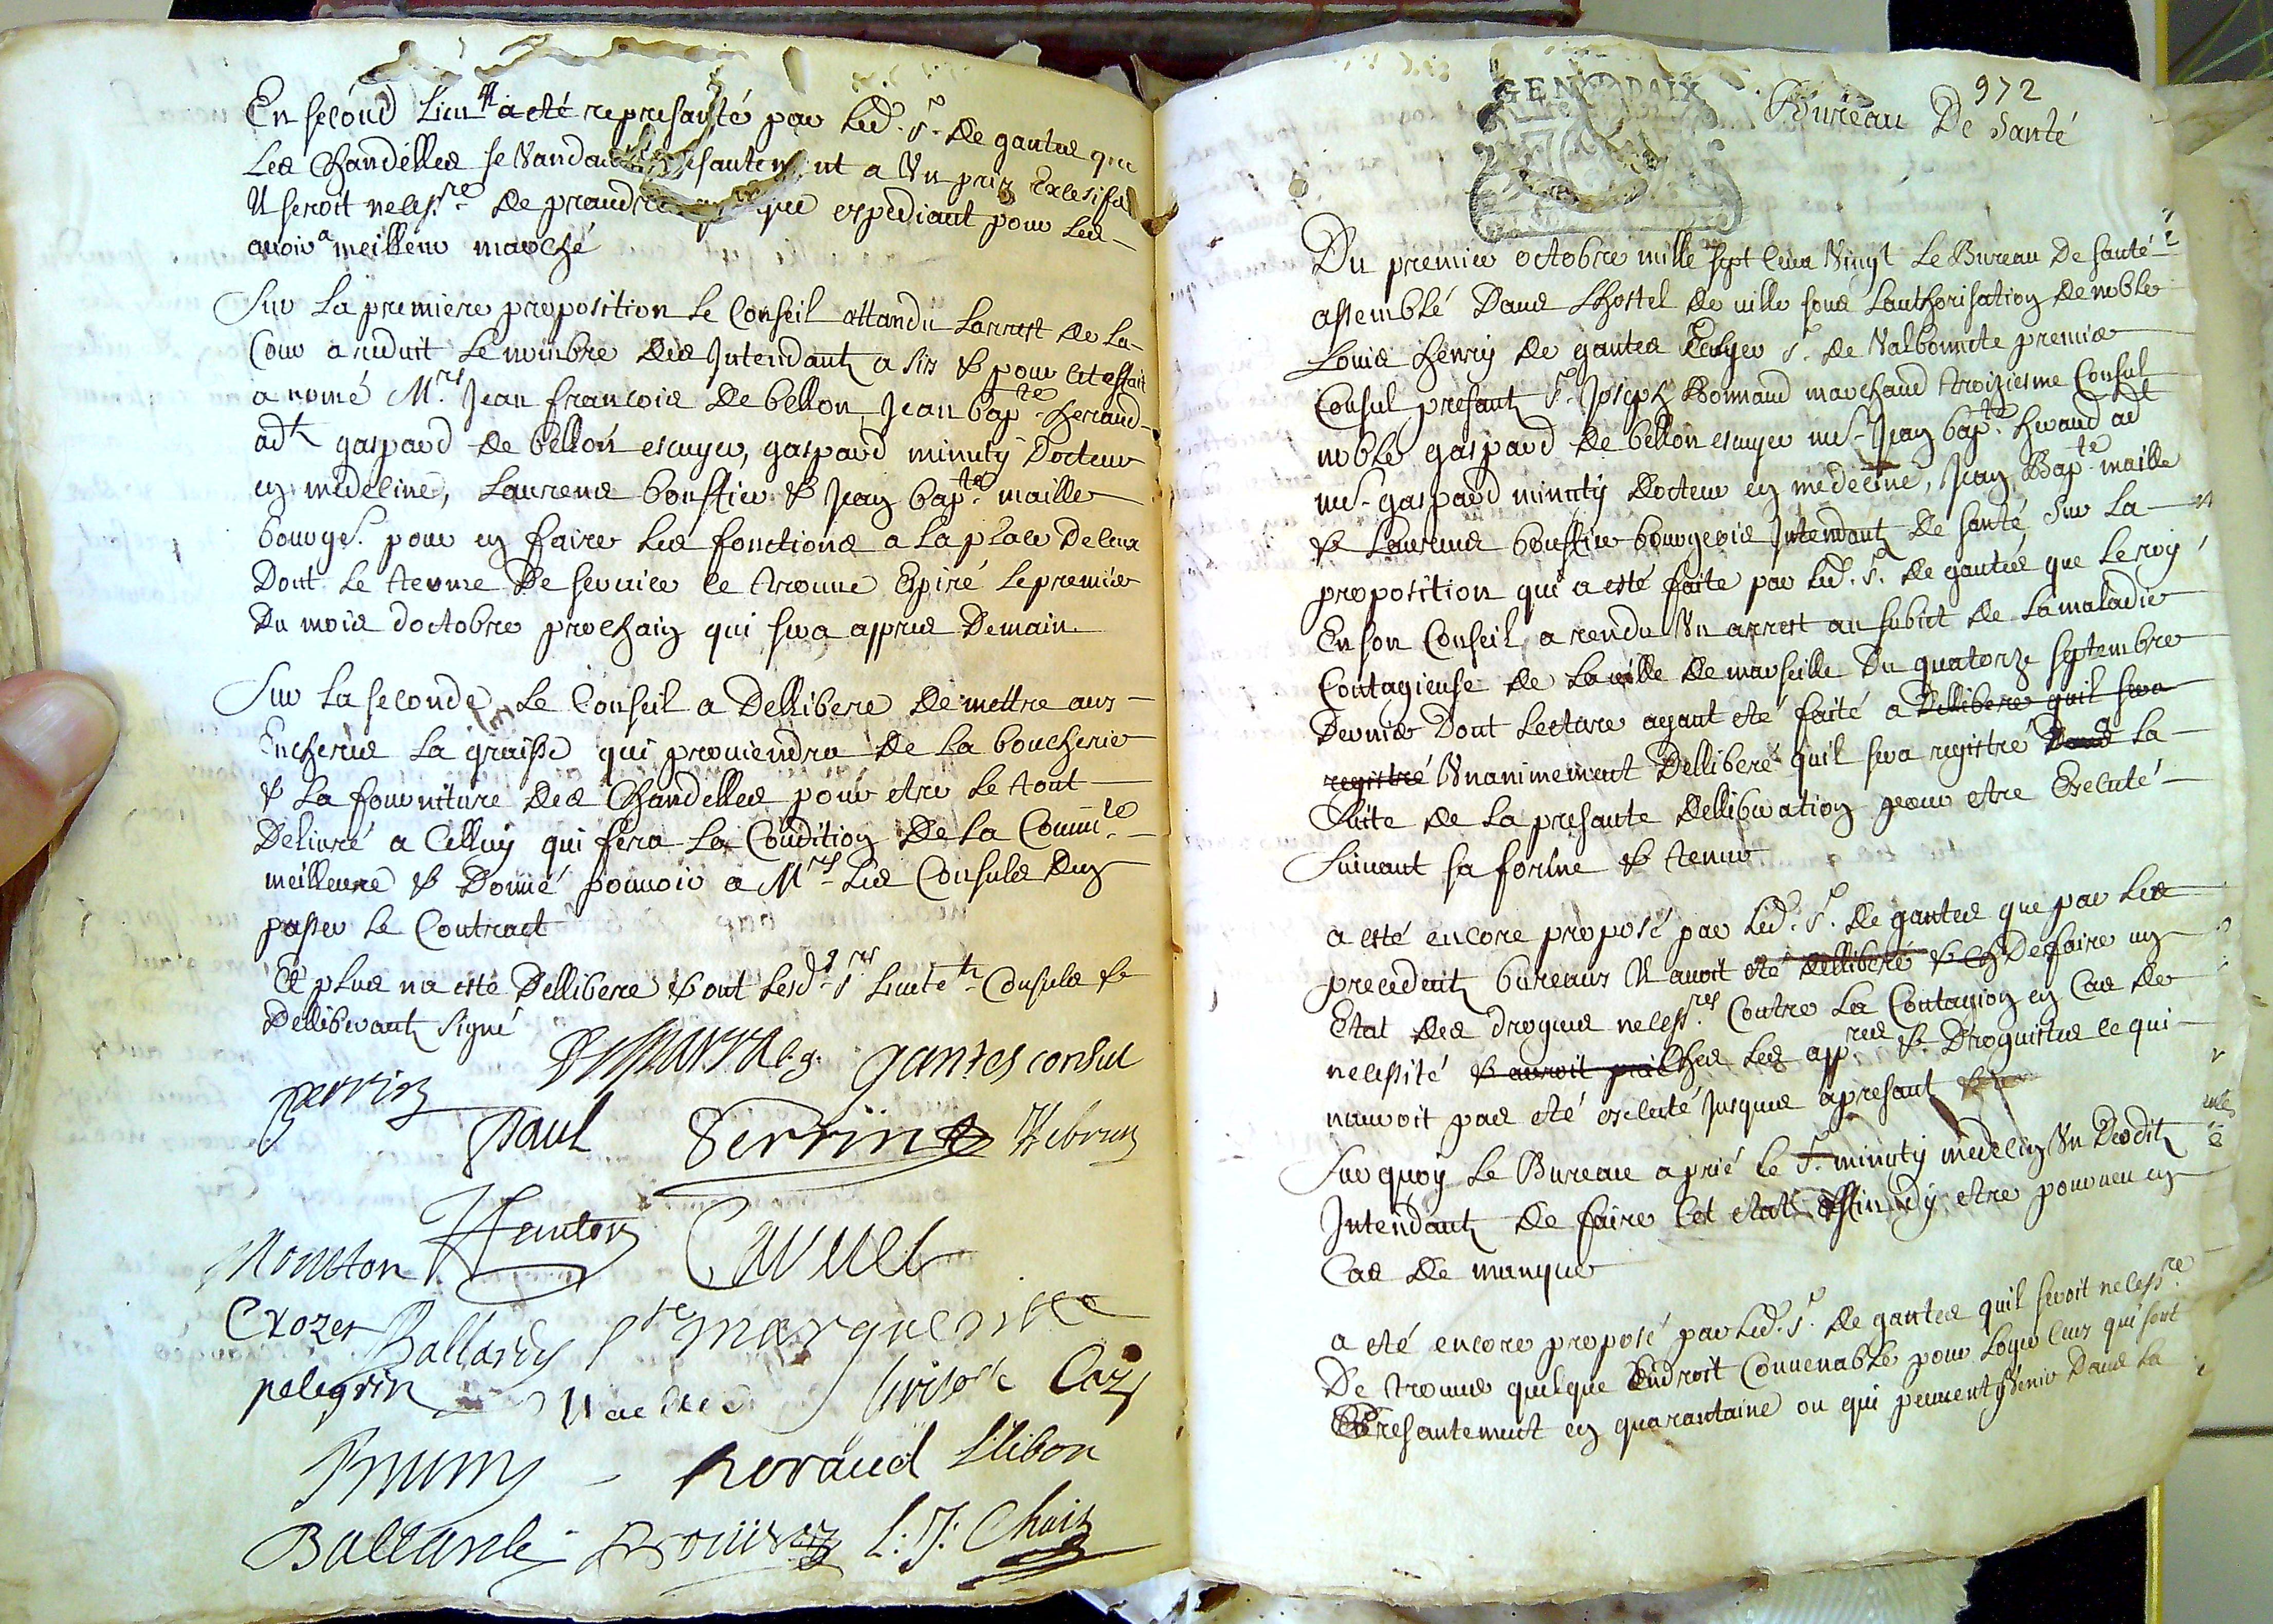 En second Lieu a été represanté par Led. Sr. De gantes que
Les Chandelles se Vandoient presantement a Un prix Excesif
Il seroit necessre. De prandre quelque expediant pour Les
avoir a meilleur marché
Sur La premiere proposition Le Conseil attandu Larrest de La
Cour a reduit Le nombre des Intendants a six & pour Cet effait
a nomé Mrs. Jean francois De bellon, Jean bapte. heraud
adt gaspard de bellon escuyer, gaspard minuty Docteur
en medecine, Laurens boustier & Jean bapte. maille
bourgs. pour en faire Les fonctions a La place De Ceux
Dont Le terme De service ce trouve Expiré Le premier
Du mois doctobre prochain qui sera appres Demain
Sur La seconde Le Conseil a Dellibere De mettre aux
Encheres La graisse qui proviendra De La boucherie
& La fourniture des Chandelles pour etre Le tout
Delivré a Celluy qui fera La Condition De La Commte
meilleure & Donné pouvoir a Mrs Les Consuls Den
passer Le Contract
Et plus na esté Dellibere & ont Lesds. Srs Lieutet. Consuls &
Delliberants signé
gantes consul
perrin
Paul Perrin Lebrun
Mouton
Crozet Ballardy Ste Marguerite
pelegrin
Brun heraud
Ballardy L: J: Chaix
GEN DAIX
972
Bureau De Santé
Du premier octobre mille sept Cens Vingt Le Bureau De santé
assemblé Dans Lhostel de ville sous Lauthorisation De noble
Louis henry de gantes Escuyer Sr. de Valbonnete premier
Consul presants Sr. Joseph Bonnaud marchand troiziesme Consul
noble gaspard de bellon escuyer mes. Jean bapte. heraud adt
mes. gaspard minuty docteur en medecine, Jean Bapte. maille
& Laurens boustier bourgeois Intendants De santé Sur La
proposition qui a esté faite par Led. Sr. de gantes que Le roy
En son Conseil a rendu Un arrest au subiet de La maladie
Contagieuse de La ville de marseille Du quatorze septembre
Dernier Dont Lecture ayant eté faité a Dellibere quil sera
registré Unanimement Dellibere quil sera registré Dans La
Suite de La presante Delliberation pour etre Executé
Suivant sa forme & teneur
a esté encore proposé par Led. Sr. de gantes que par Les
precedents bureaux Il avoit eté dellibéré & De faire un
Etat des drogues necessres. Contre La Contagion en Cas de
necessité & auroit Chés Les appres & Droguistes ce qui
nauroit pas eté executé Jusques apresant
Sur quoy Le Bureau a prié Le Sr. minuty medecin Un Desdits
Intendants De faire Cet etat affin dy etre pourveu en
Cas De manque
a eté encore proposé par Led. Sr. de gantes quil seroit necessre.
De trouver quelque Endroit Convenable pour Loger Ceux qui sont
Presantement en quarantaine ou qui peuvent Venir Dans La